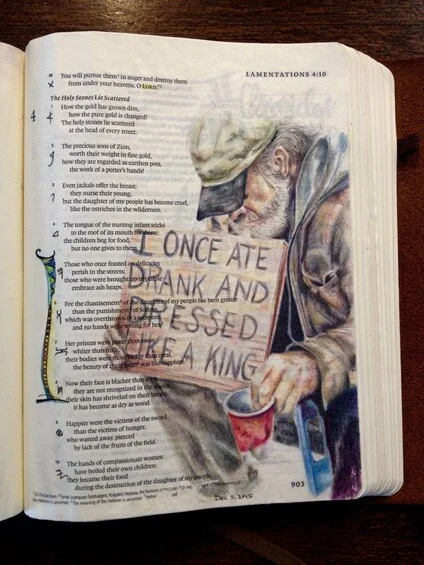 LAMENTATIONS 4:10
You will pursue them in anger and destroy them
from under your heavens, O LORD."
The Holy Stones Lie Scattered
4
How the gold has grown dim,
how the pure gold is changed!
The holy stones lie scattered
at the head of every street.
The precious sons of Zion,
worth their weight in fine gold,
how they are regarded as earthen pots,
the work of a potter's hands!
Even jackals offer the breast;
they nurse their young,
but the daughter of my people has become cruel,
like the ostriches in the wilderness.
The tongue of the nursing infant sticks
to the roof of its mouth for thirst;
the children beg for food,
but no one gives to them.
Those who once feasted on delicacies
perish in the streets;
those who were brought up in
embrace ash heaps.
For the chastisement of the daughter of my people has been greater
than the punishment of Sodom,
which was overthrown in a moment,
and no hands were wrung for her.
Her princes were purer than snow,
whiter than
their bodies were more ruddy than coral,
the beauty of their form was like
Now their face is blacker than
they are not recognized in the
their skin has shriveled on their bones;
it has become as dry as wood.
Happier were the victims of the sword
than the victims of hunger,
who wasted away, pierced
by lack of the fruits of the field.
The hands of compassionate women
have boiled their own children;
they became their food
during the destruction of the daughter of my people.
I ONCE ATE
DRANK AND
DRESSED
LIKE A KING
903
Dec. 5, 2015